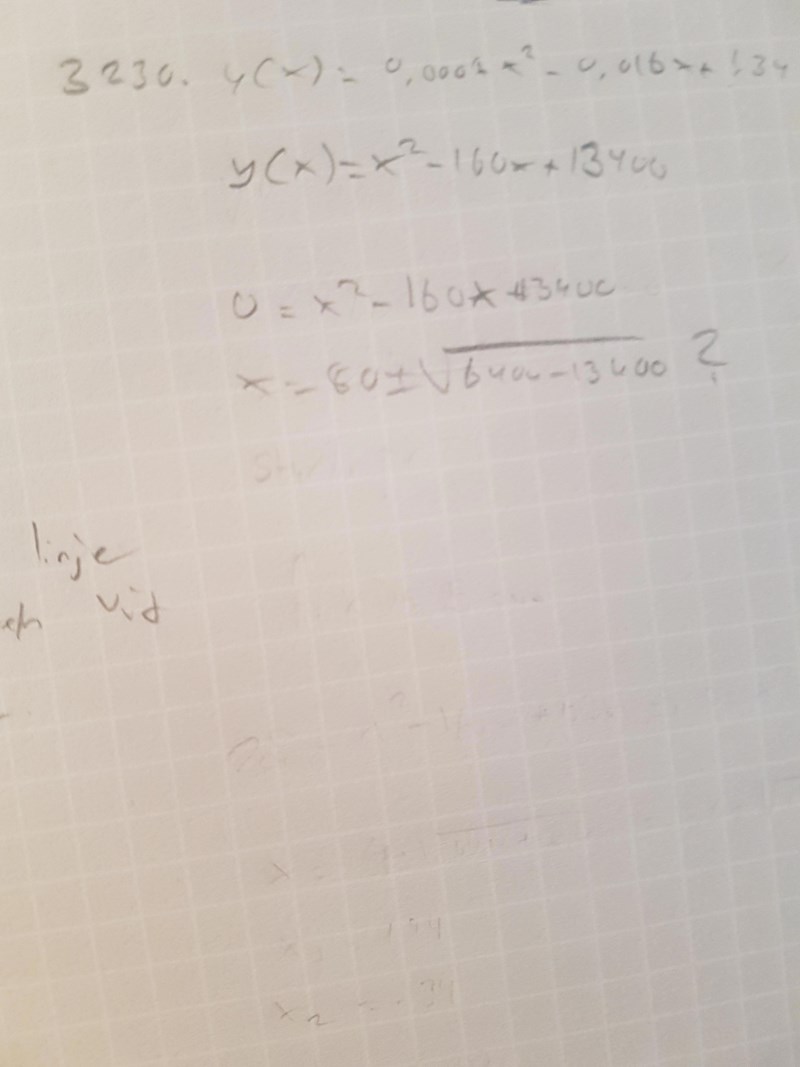 3230. y(x) = 0,0001x² - 0,016x + 1,34
y(x) = x² - 160x + 13400
0 = x² - 160x + 13400
x = 80 ± √6400 - 13400 ?
linje
vid